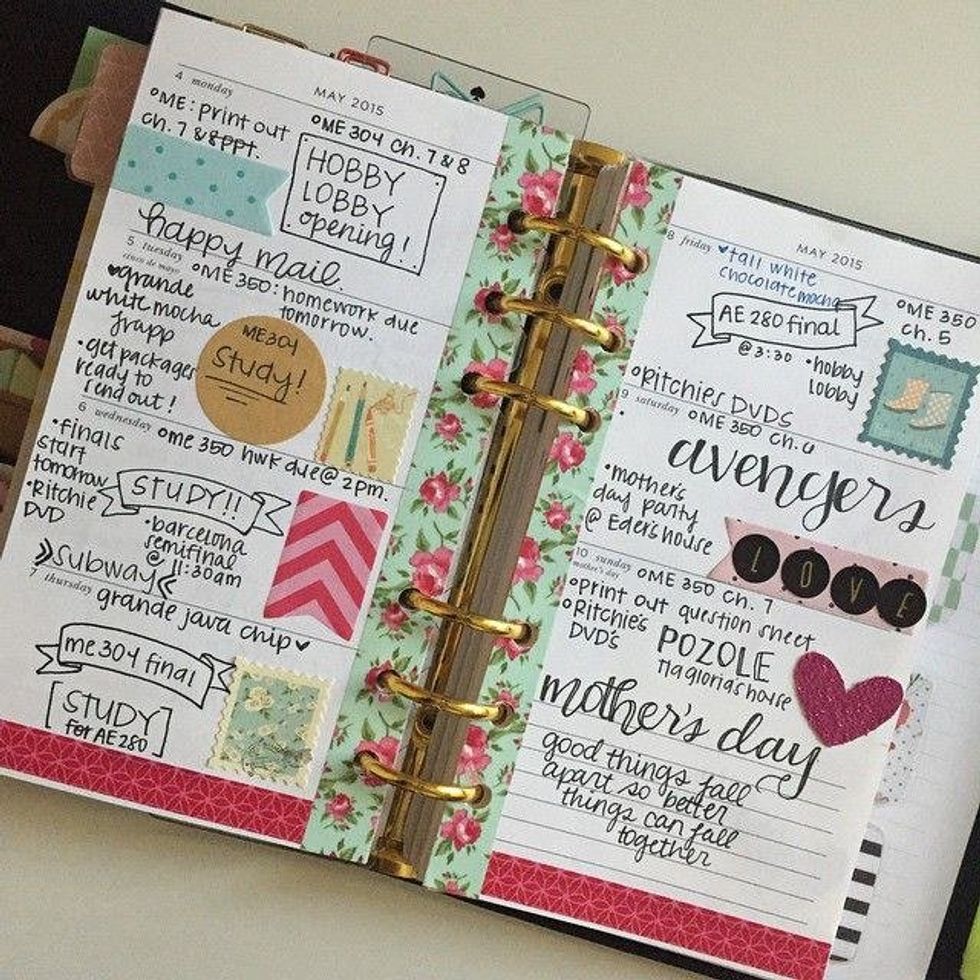 MAY 2015
4 monday
°ME: Print out
ch. 7 & 8 ppt.
°ME 304 ch. 7 & 8
HOBBY
LOBBY
opening!
happy mail.
5 tuesday
cinco de mayo
°ME 350: homework due
tomorrow.
♥grande
white mocha
frapp
•get packages
ready to
send out!
ME304
Study!
6 wednesday
°me 350 hwk due @ 2pm.
•finals
start
tomorrow
•Ritchie
DVD
STUDY!!
•barcelona
semifinal
@ 11:30am
»Subway«
7 thursday
grande java chip♥
me 304 final
[STUDY
for AE 280]
MAY 2015
8 friday
♥tall white
chocolate mocha
AE 280 final
@ 3:30
°ME 350
ch. 5
•hobby
lobby
°Ritchies DVDS
9 saturday
°ME 350 ch. 6
avengers
•mother's
day party
@ Eder's house
LOVE
10 sunday
mother's day
°ME 350 ch. 7
°Print out question sheet
°Ritchie's
DVD's
POZOLE
@ gloria's house
mother's day
good things fall
apart so better
things can fall
together